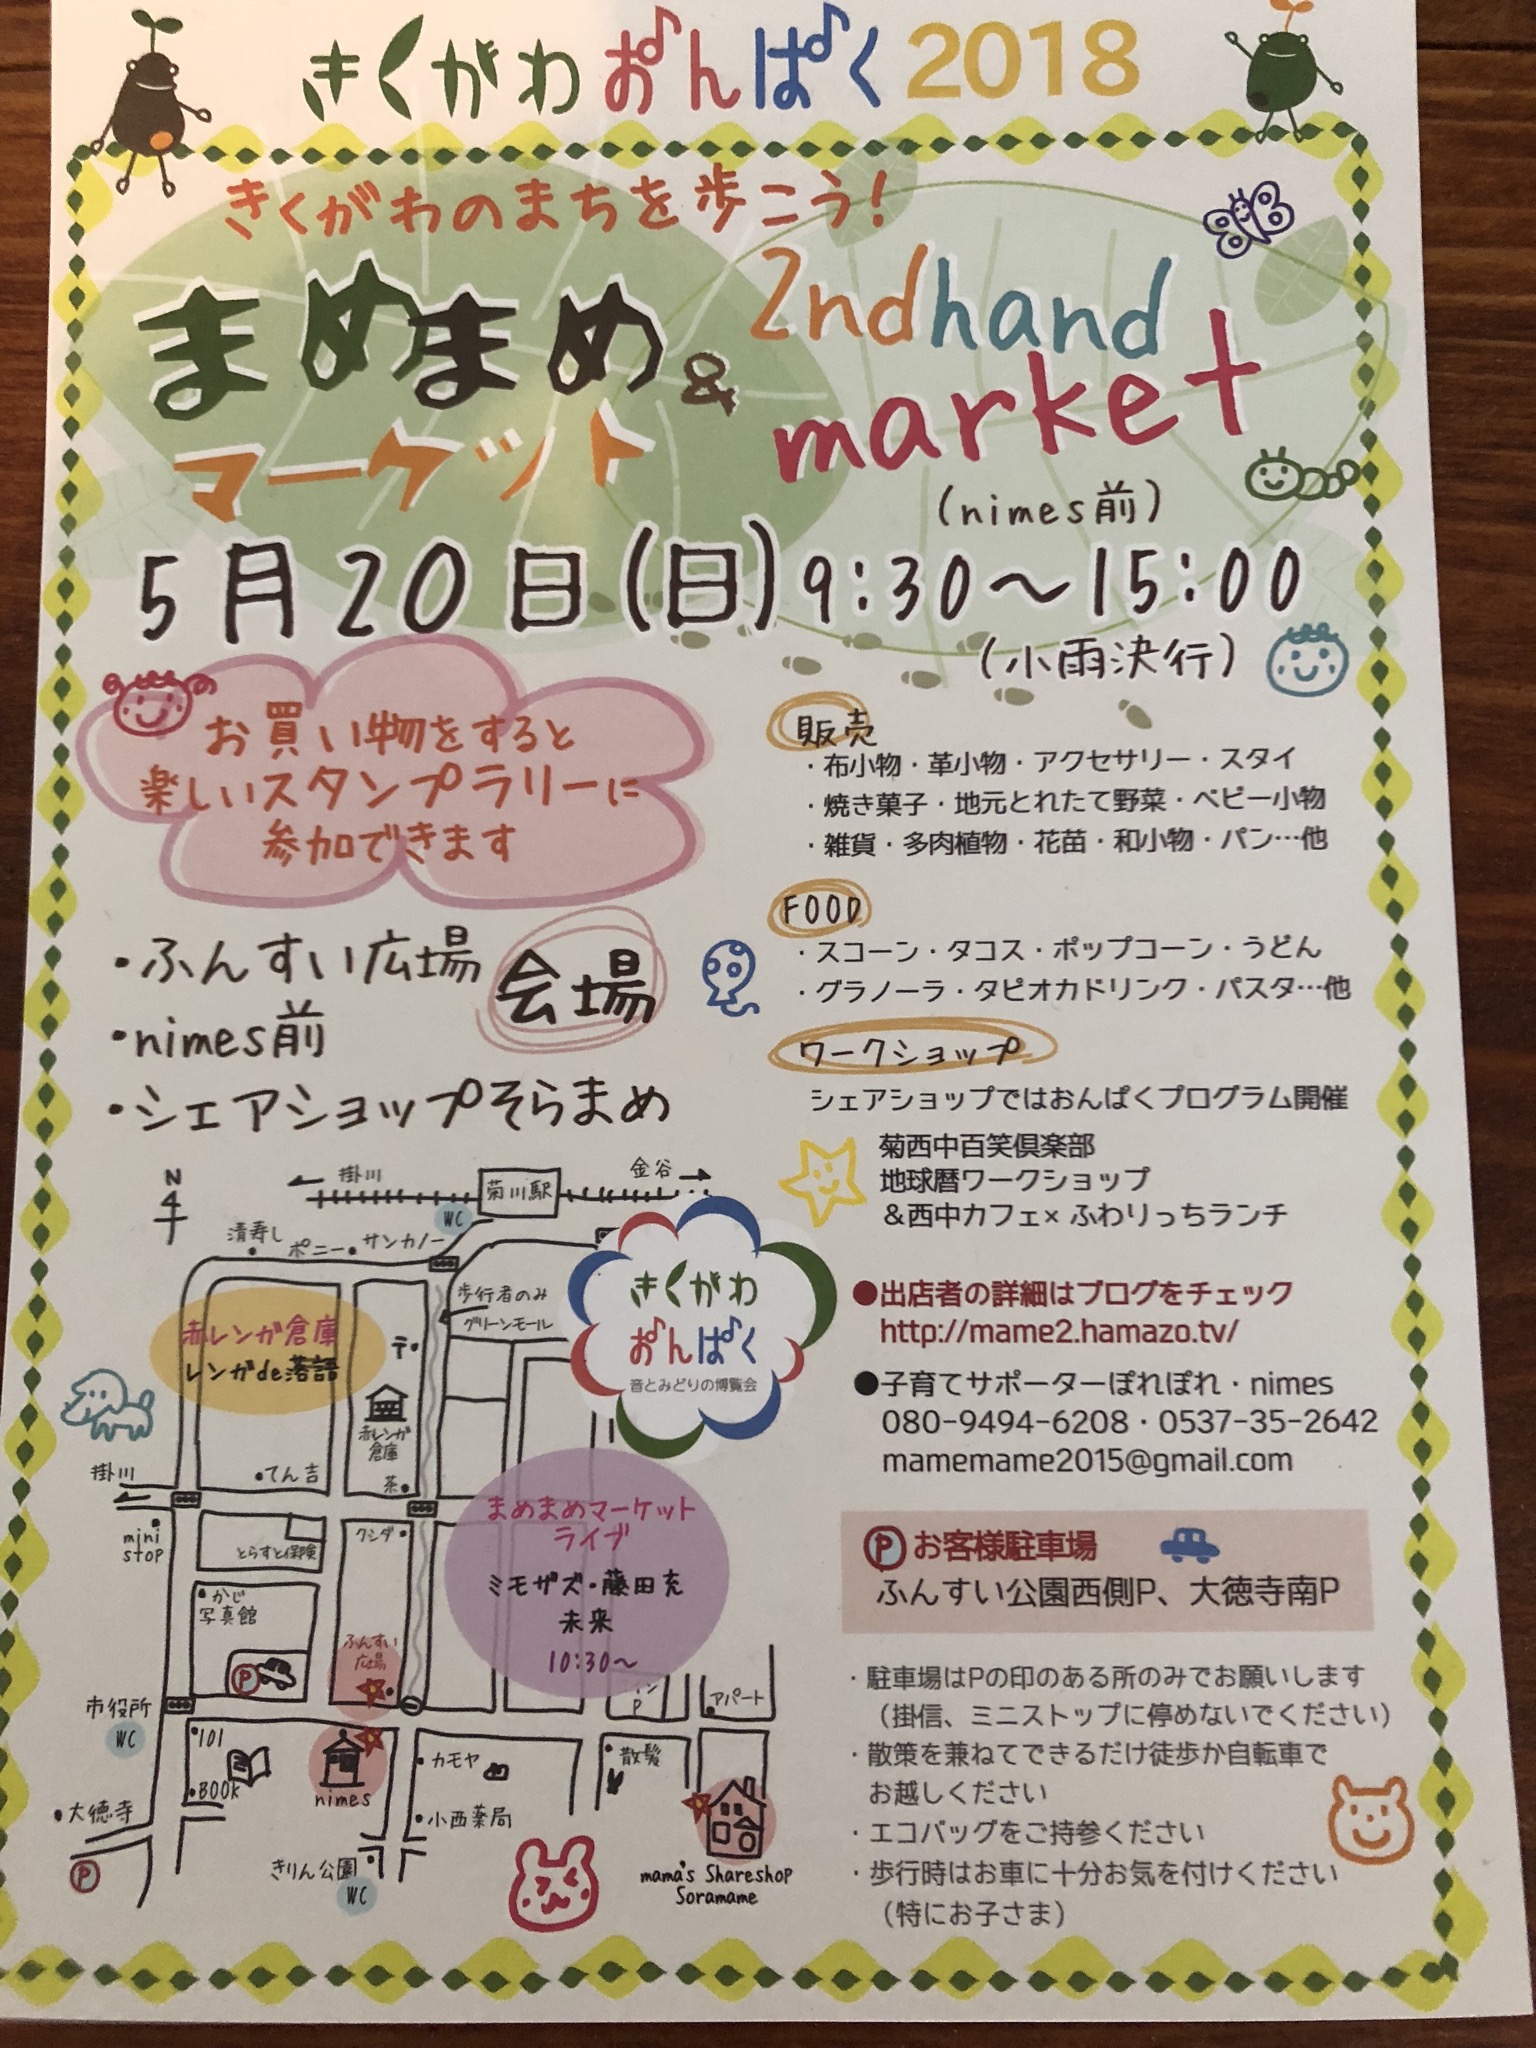 きくがわおんぱく2018
きくがわのまちを歩こう!
まめまめ
マーケット
&
2ndhand
market
(nimes前)
5月20日(日)9:30〜15:00
(小雨決行)
お買い物をすると
楽しいスタンプラリーに
参加できます
会場
・ふんすい広場
・nimes前
・シェアショップそらまめ
販売
・布小物・革小物・アクセサリー・スタイ
・焼き菓子・地元とれたて野菜・ベビー小物
・雑貨・多肉植物・花苗・和小物・パン…他
FOOD
・スコーン・タコス・ポップコーン・うどん
・グラノーラ・タピオカドリンク・パスタ…他
ワークショップ
シェアショップではおんぱくプログラム開催
菊西中百笑倶楽部
地球暦ワークショップ
&西中カフェ×ふわりっちランチ
●出店者の詳細はブログをチェック
http://mame2.hamazo.tv/
●子育てサポーターぽれぽれ・nimes
080-9494-6208・0537-35-2642
mamemame2015@gmail.com
Ⓟお客様駐車場
ふんすい公園西側P、大徳寺南P
・駐車場はPの印のある所のみでお願いします
(掛信、ミニストップに停めないでください)
・散策を兼ねてできるだけ徒歩か自転車で
お越しください
・エコバッグをご持参ください
・歩行時はお車に十分お気を付けください
(特にお子さま)
N
掛川
菊川駅
金谷
WC
清寿し
ポニー
サンカノー
歩行者のみ
グリーンモール
きくがわ
おんぱく
音とみどりの博覧会
赤レンガ倉庫
レンガde落語
赤レンガ
倉庫
てん吉
茶
掛川
mini
stop
とらすと保険
クシダ
まめまめマーケット
ライブ
ミモザズ・藤田充
未来
10:30〜
かじ
写真館
P
ふんすい
広場
市役所
WC
P
アパート
101
BOOK
nimes
カモヤ
散髪
大徳寺
小西薬局
P
きりん公園
WC
mama's Shareshop
Soramame